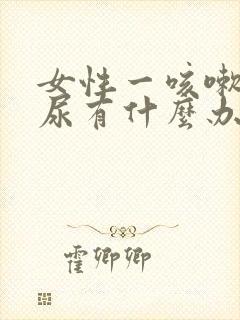 女性一咳嗽
尿有什麼办
霍卿卿